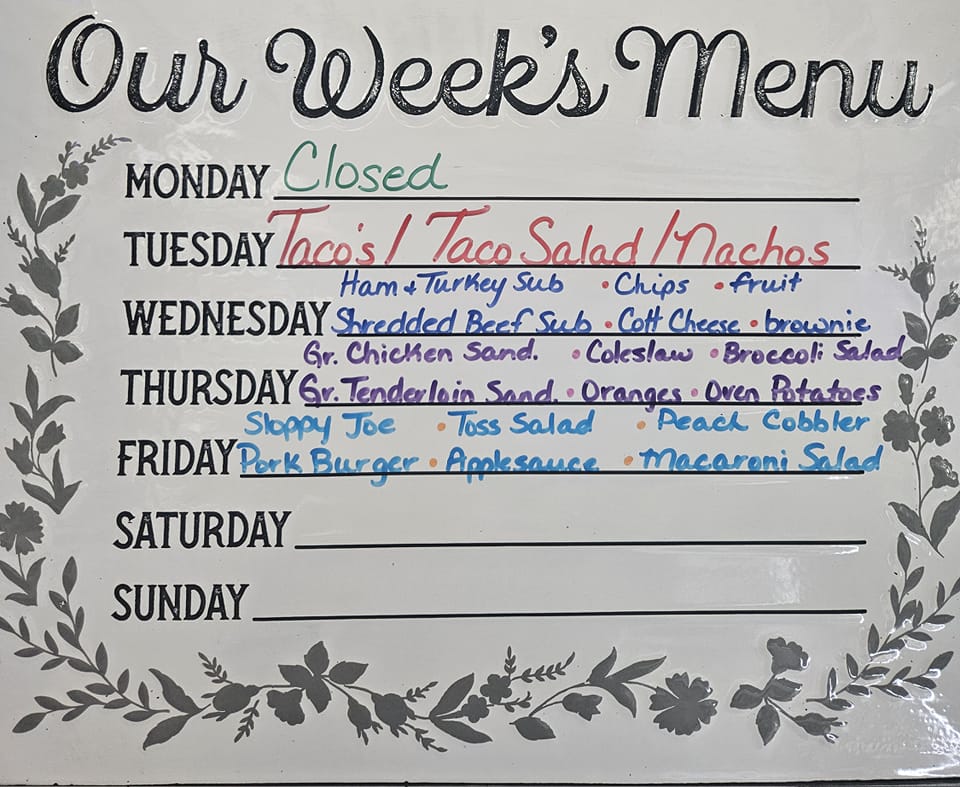 Our Week's Menu
MONDAY Closed
TUESDAY Taco's / Taco Salad / Nachos
Ham + Turkey Sub • Chips • fruit
WEDNESDAY Shredded Beef Sub • Cott Cheese • brownie
Gr. Chicken Sand. • Coleslaw • Broccoli Salad
THURSDAY Gr. Tenderloin Sand. • Oranges • Oven Potatoes
Sloppy Joe • Toss Salad • Peach Cobbler
FRIDAY Pork Burger • Applesauce • Macaroni Salad
SATURDAY
SUNDAY